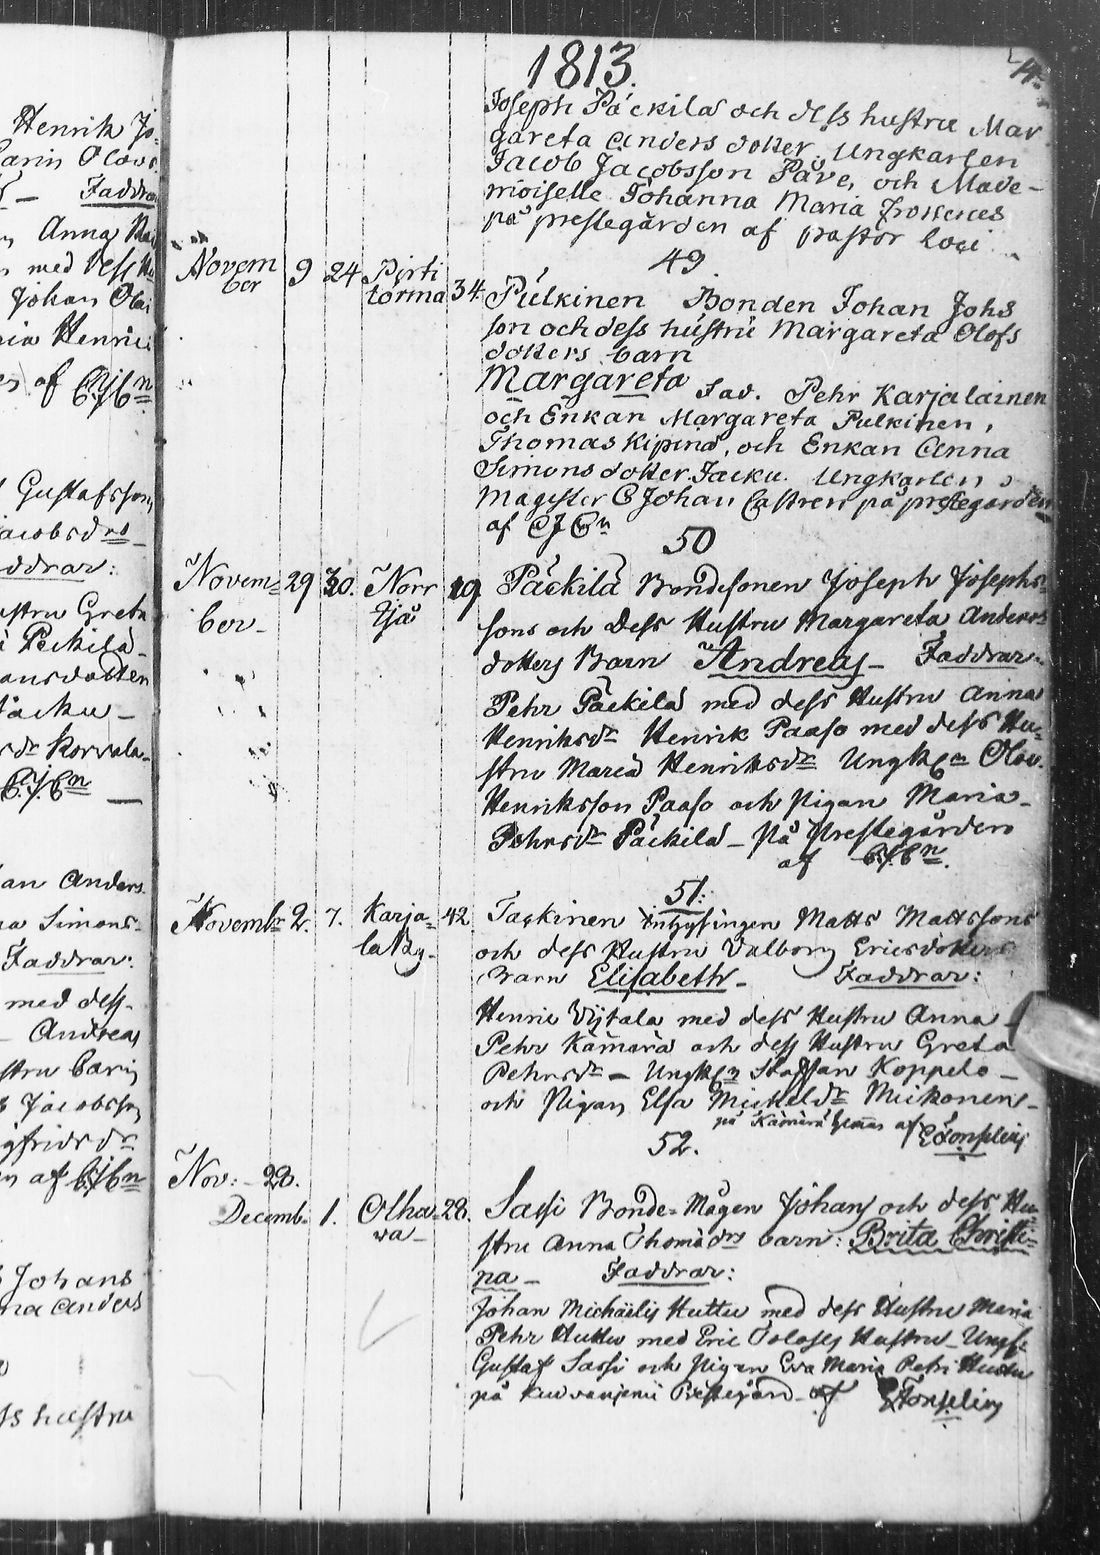 Henrik Jo-
Carin Olovs
Faddrar
Anna
med dess
Johan Olai
Maria Henrics
af CJCn
Gustafsson
Jacobsdr
Faddrar:
Hustru Greta
Päckilä
Hansdotter
Jäcku
Korvala
CJCn
Johan Anders
Simons-
Faddrar:
med dess
Andreas
Hustru Carin
Jacobsson
Sigfridsdr
af CJCn
Johans
Anna Anders
dess hustru
1813.
Joseph Päckilä och dess hustru Mar
gareta Anders dotter, Ungkarlen
Jacob Jacobsson Päve, och Made-
moiselle Johanna Maria Frosterus
på prestegården af pastor loci
49
Novem 9 24 Pirti 34 Pulkinen Bonden Johan Johs
ber törmä son och dess hustru Margareta Olofs
dotters barn
Margareta Fad. Pehr Karjalainen
och Enkan Margareta Pulkinen,
Thomas Kipinä, och Enkan Anna
Simons dotter Jäcku. Ungkarlen
Magister C Johan Castren på prestegården
af CJCn
50
Novem- 29 30. Norr 19 Päckilä Bondesonen Joseph Josephs-
ber- Ijå sons och dess Hustru Margareta Anders
dotters Barn Andreas - Faddrar:
Pehr Päckilä med dess Hustru Anna
Henriksdr Henrik Paaso med dess Hu-
stru Maria Henriksdr Ungk:n Olov.
Henriksson Paaso och Pigan Maria
Pehrsdr Päckilä - på Prestegården
af CJCn.
51.
Novembr 2. 7. Karja- 42 Taskinen Inhysingen Matts Mattssons
la By. och dess Hustru Valborg Ericsdotters
barn Elisabeth - Faddrar:
Henric Vijtala med dess Hustru Anna -
Pehr Kämärä och dess Hustru Greta
Pehrsdr - Ungk:n Staffan Koppelo -
och Pigan Elsa Mickelsdr Miikonen -
på Kämärä hemman af
52.
Nov: 28.
Decemb. 1. Olha- 28. Sassi Bonde-Mågen Johans och dess Hu-
va- stru Anna Thomædrs barn: Brita Christi-
na - Faddrar:
Johan Michaelis Huttu med dess Hustru Maria
Pehr Huttu med Eric Hustru - Ungk:
Gustaf Sassi och Pigan Eva Maria Petri Huttu
på Kuivaniemi Prestegård - af